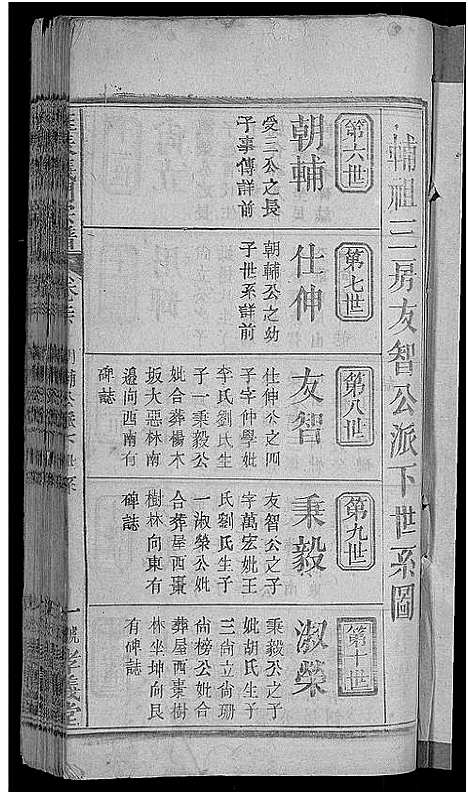 輔祖三房友智公派下世系圖
第六世
朝輔
受三公之長
子事傳詳前
第七世
仕伸
朝輔公之幼
子世系詳前
第八世
友智
仕伸公之四
子字仲學妣
李氏劉氏生
子一秉毅公
妣合葬楊木
坂大惡林南
邊向西南有
碑誌
第九世
秉毅
友智公之子
字萬宏妣王
氏劉氏生子
一淑榮公妣
合葬屋西棗
樹林向東有
碑誌
第十世
淑榮
秉毅公之子
妣胡氏生子
三尙立尙珊
尙榜公妣合
葬屋西棗樹
林坐坤向艮
有碑誌
朝輔公派下世系
一號 孝義堂